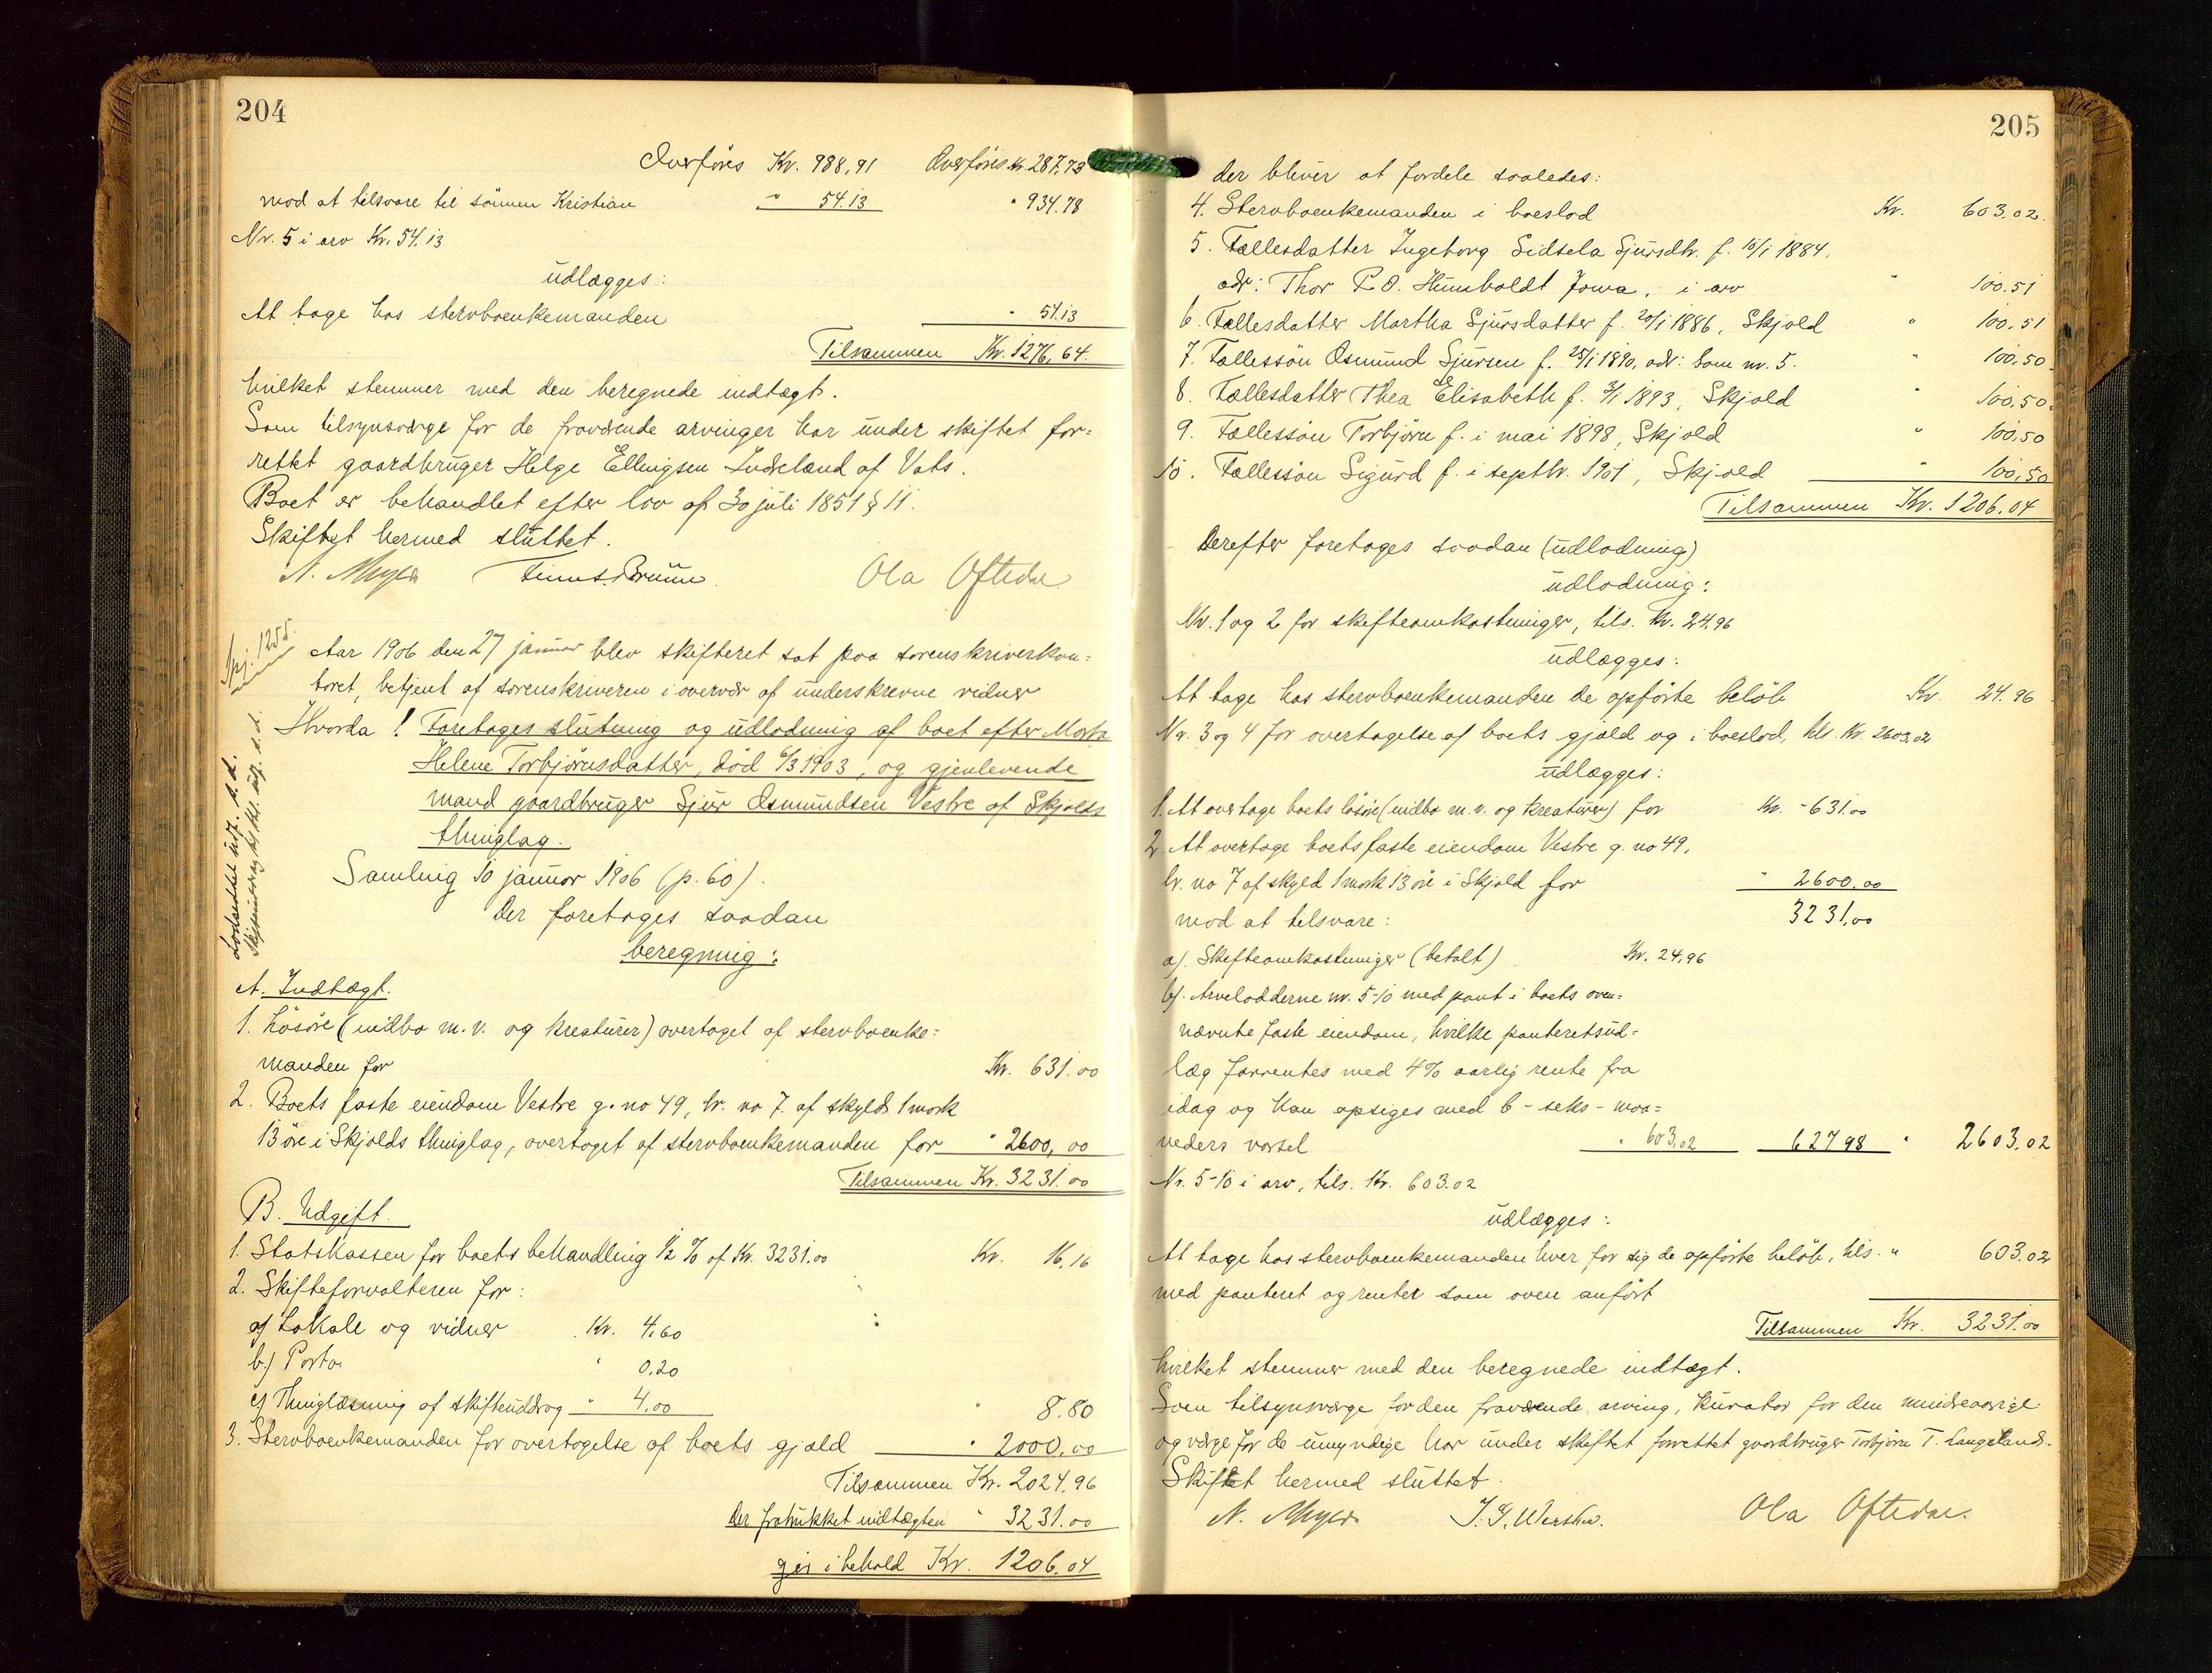 204
Overføres Kr. 988,91 Overføres Kr. 287,73
mod at tilsvare til sønnen Kristian " 54.13 " 934.78
Nr. 5 i arv Kr. 54.13
udlægges:
At tage hos stervboenkemanden " 54.13
Tilsammen Kr. 1276,64.
hvilket stemmer med den beregnede indtægt.
Som tilsynsværge for de fraværende arvinger har under skiftet for=
rettet gaardbruger Helge Ellingsen Indreland af Vats.
Boet er behandlet efter lov af 30 juli 1851 § 11.
Skiftet hermed sluttet.
N. Meyer Finn S. Bruun. Ola Oftedal
Spj. 1255.
Aar 1906 den 27 januar blev skifteret sat paa sorenskriverkon=
toret, betjent af sorenskriveren i overvær af underskrevne vidner
Hvorda! Foretoges slutning og udlodning af boet efter Marta
Helene Torbjørnsdatter, død 6/3 1903, og gjenlevende
mand gaardbruger Sjur Osmundsen Vestre af Skjolds
thinglag.
Lodsedler udf. s.d.
Skjøteuddrag til thl. udf. s.d.
Samling 10 januar 1906 (p. 60).
Der foretoges saadan
beregning:
A. Indtægt.
1. Løsøre (indbo m.v. og kreaturer) overtaget af stervboenke=
manden for Kr. 631.00
2. Boets faste eiendom Vestre g. no 49, br. no 7 af skyld 1 mark
13 øre i Skjolds thinglag, overtaget af stervboenkemanden for " 2600,00
Tilsammen Kr. 3231.00
B. Udgift.
1. Statskassen for boets behandling 1/2 % af Kr. 3231.00 Kr. 16,16
2. Skifteforvalteren for:
a) Lokale og vidner Kr. 4,60
b.) Porto " 0.20
c) Thinglæsning af skifteuddrag " 4,00 " 8.80
3. Stervboenkemanden for overtagelse af boets gjæld " 2000,00
Tilsammen Kr. 2024,96
Der fratrukket indtægten " 3231.00
gir i behold Kr. 1206.04
205
der bliver at fordele saaledes:
4. Stervboenkemanden i boeslod Kr. 603.02.
5. Fællesdatter Ingeborg Sidsela Sjursdtr. f. 10/1 1884,
adr: Thor P.O. Humboldt Jowa, i arv " 100.51
6. Fællesdatter Martha Sjursdatter f. 20/1 1886, Skjold " 100.51
7. Fællessøn Osmund Sjursen f. 25/1 1890, adr: Som nr. 5. " 100,50
8. Fællesdatter Thea Elisabeth f. 3/1 1893, Skjold " 100,50
9. Fællessøn Torbjørn f. i mai 1898, Skjold " 100,50
10. Fællessøn Sigurd f. i septbr. 1901, Skjold " 100,50
Tilsammen Kr. 1206.04
Derefter foretages saadan (udlodning)
udlodning:
Nr. 1 og 2 for skifteomkostninger, tils. Kr. 24.96
udlægges:
At tage hos stervboenkemanden de opførte beløb Kr. 24.96
Nr. 3 og 4 for overtagelse af boets gjæld og i boeslod, tils. Kr. 2603,02
udlægges:
1. At overtage boets løsøre (indbo m.v. og kreaturer) for Kr. 631.00
2. At overtage boets faste eiendom Vestre g. no 49,
br. no 7 af skyld 1 mark 13 øre i Skjold for " 2600,00
mod at tilsvare: 3231,00
a). Skifteomkostninger (betalt) Kr. 24,96
b). Arvelodderne nr. 5-10 med pant i boets oven=
nævnte faste eiendom, hvilke panteretsud=
læg forrentes med 4% aarlig rente fra
idag og kan opsiges med 6 - seks - maa=
neders varsel " 603.02 627 98 " 2603.02
Nr. 5-10 i arv, tils. Kr. 603.02
udlægges:
At tage hos stervboenkemanden hver for sig de opførte beløb, tils. " 603.02
med panteret og renter som oven anført
Tilsammen Kr. 3231.00
hvilket stemmer med den beregnede indtægt.
Som tilsynsværge for den fraværende arving, kurator for den mindreaarige
og værge for de umyndige har under skiftet forrettet gaardbruger Torbjørn T. Langeland.
Skiftet hermed sluttet.
N. Meyer Ola Oftedal.